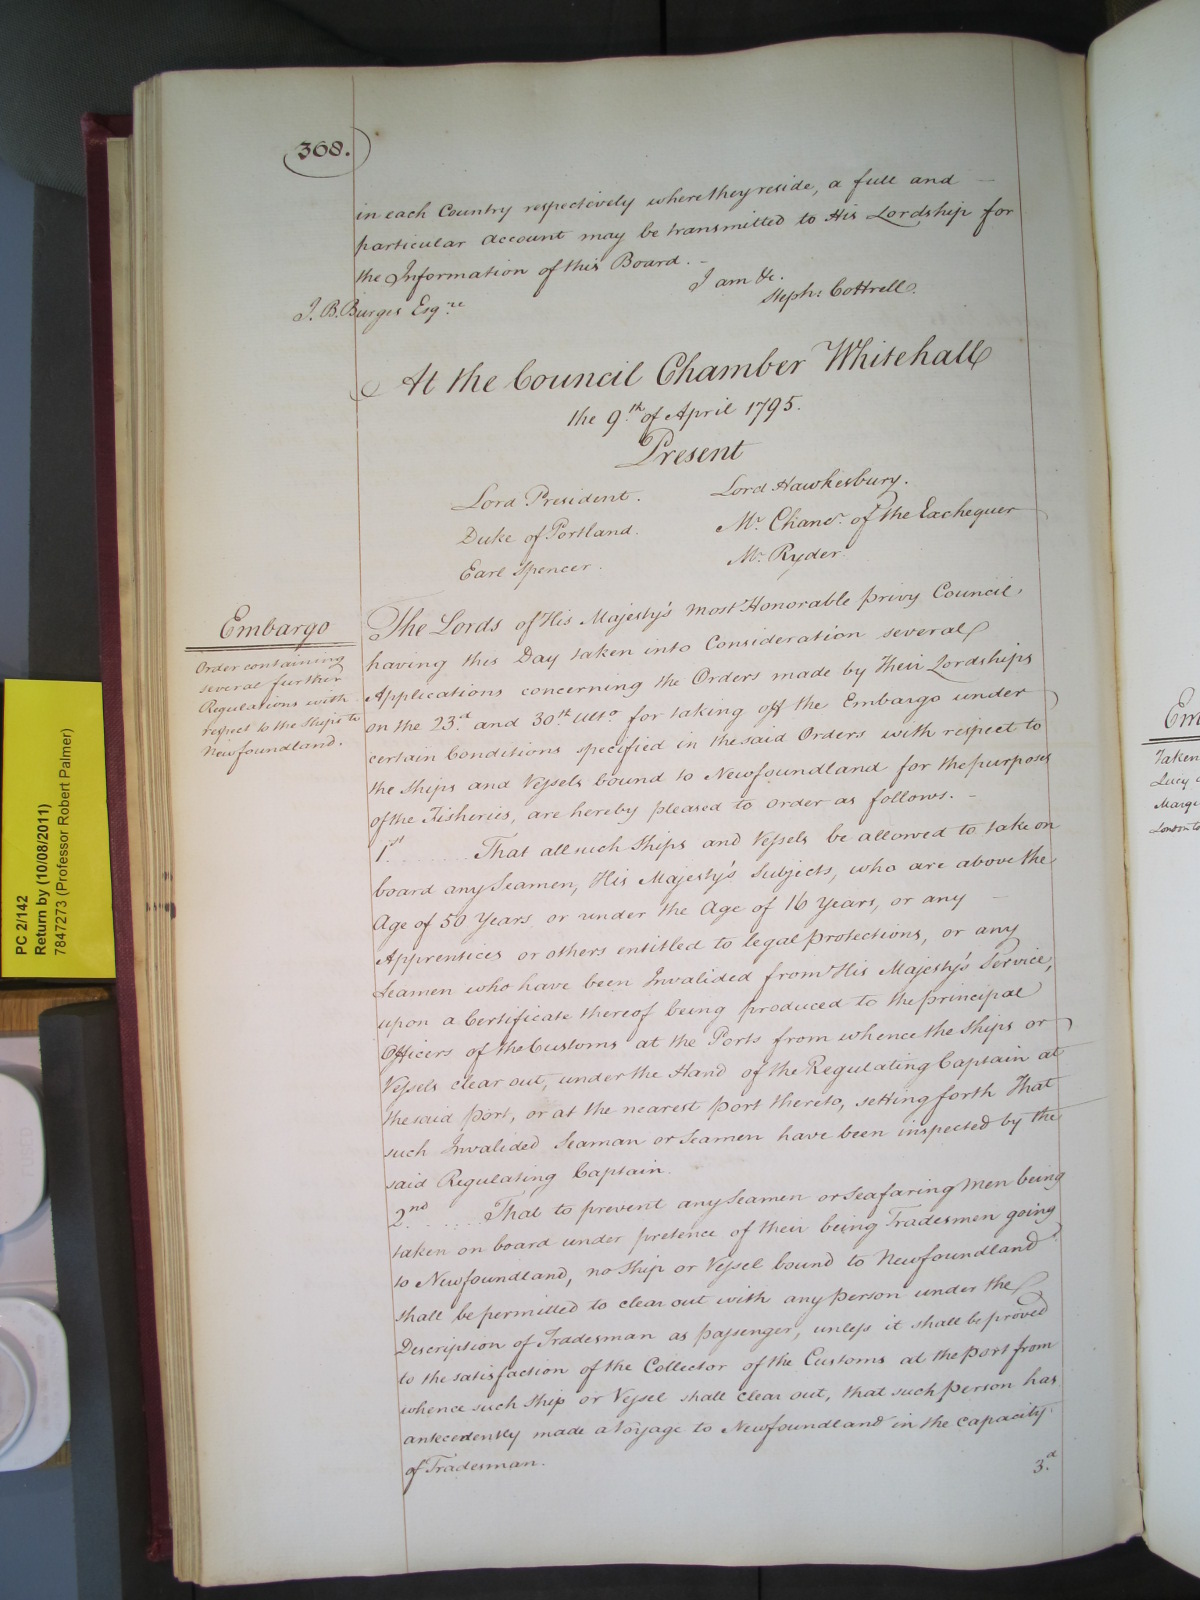 368.
in each Country respectively where they reside, a full and
particular account may be transmitted to His Lordship for
the Information of this Board.
I am &c.
Steph: Cottrell.
J. B. Burges Esqre
At the Council Chamber Whitehall
the 9th of April 1795.
Present
Lord President.
Lord Hawkesbury.
Duke of Portland.
Mr. Chancr. of the Exchequer
Earl Spencer.
Mr. Ryder.
Embargo
Order containing
several further
Regulations with
respect to the Ships to
Newfoundland.
The Lords of His Majesty's most Honorable privy Council,
having this Day taken into Consideration several
Applications concerning the Orders made by Their Lordships
on the 23rd and 30th Ulto for taking off the Embargo under
certain Conditions specified in the said Orders with respect to
the Ships and Vessels bound to Newfoundland for the purposes
of the Fisheries, are hereby pleased to order as follows.
1st That all such Ships and Vessels be allowed to take on
board any Seamen, His Majesty's Subjects, who are above the
Age of 50 Years or under the Age of 16 Years, or any
Apprentices or others entitled to legal protections, or any
Seamen who have been Invalided from His Majesty's Service,
upon a Certificate thereof being produced to the principal
Officers of the Customs at the Ports from whence the Ships or
Vessels clear out, under the Hand of the Regulating Captain at
the said port, or at the nearest port thereto, setting forth That
such Invalided Seaman or Seamen have been inspected by the
said Regulating Captain.
2nd That to prevent any Seamen or Seafaring Men being
taken on board under pretence of their being Tradesmen going
to Newfoundland, no Ship or Vessel bound to Newfoundland
shall be permitted to clear out with any person under the
Description of Tradesman as passenger, unless it shall be proved
to the satisfaction of the Collector of the Customs at the port from
whence such Ship or Vessel shall clear out, that such person has
antecedently made a Voyage to Newfoundland in the capacity
of Tradesman.
3d
PC 2/142
Return by (10/08/2011)
7847273 (Professor Robert Palmer)
Em
Taken
Lucy